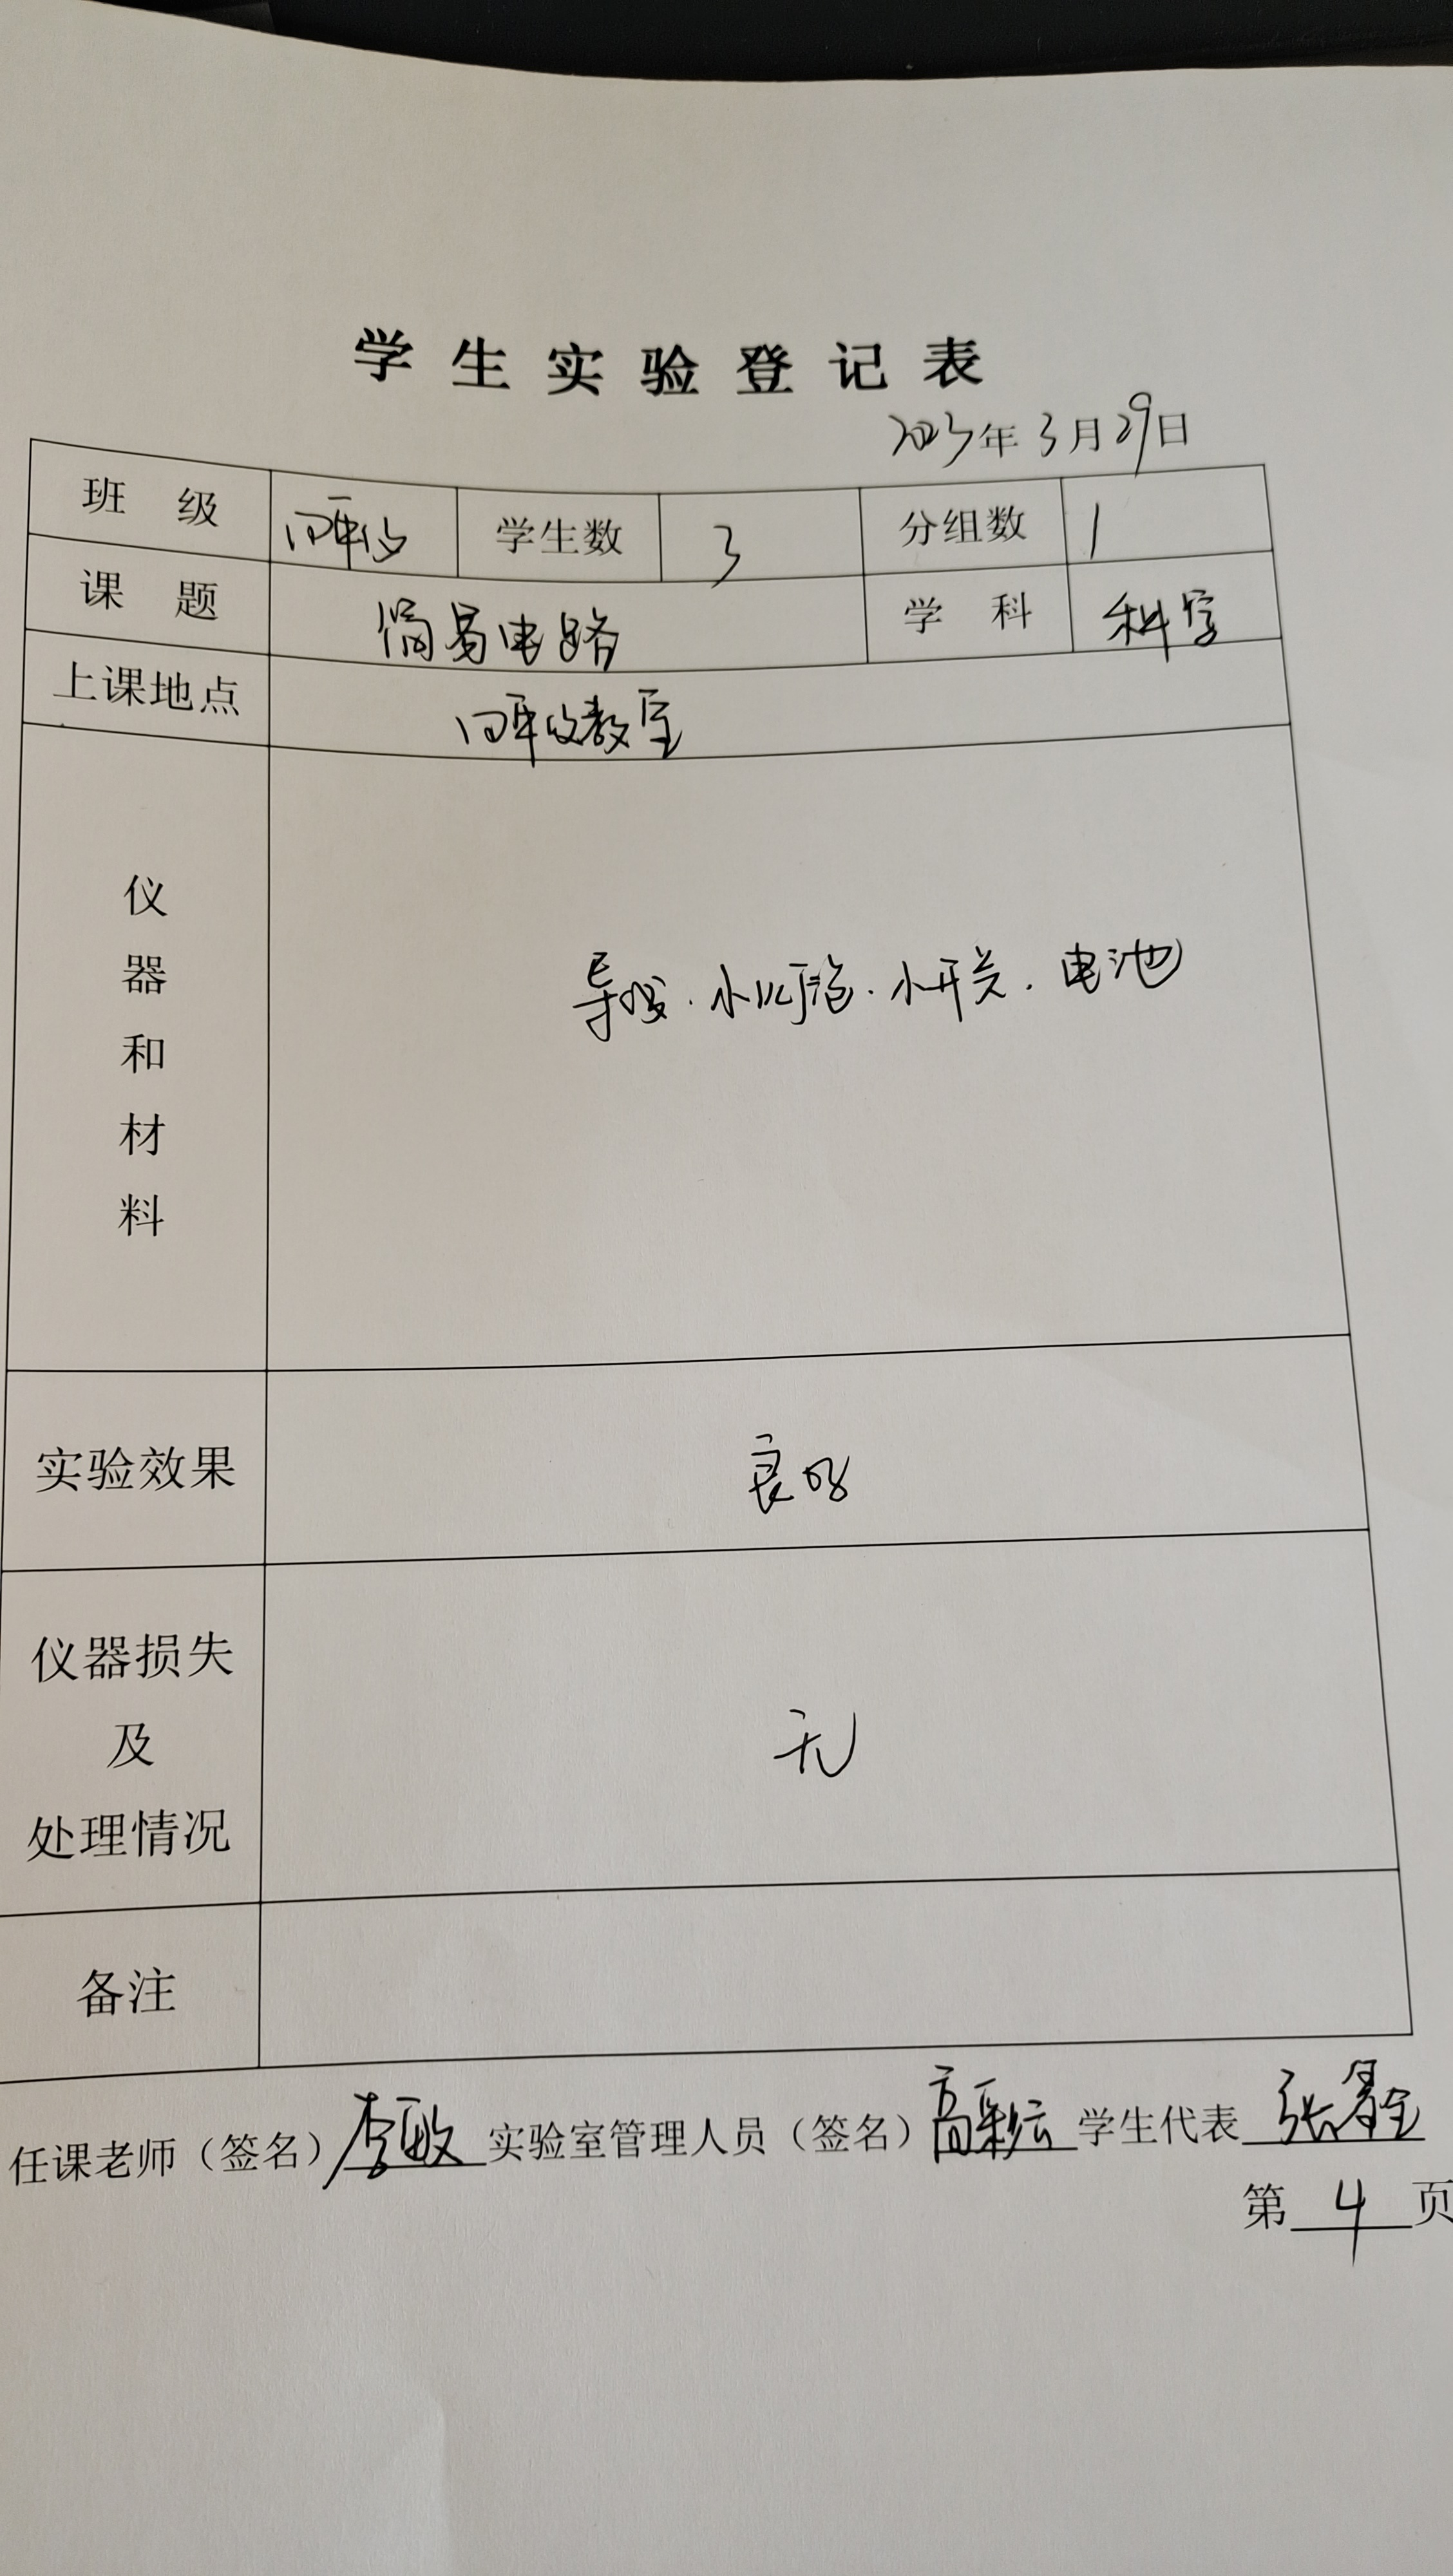 学生实验登记表
2023年3月29日
班 级 四年级 学生数 3 分组数 1
课 题 简易电路 学 科 科学
上课地点 四年级教室
仪器和材料 导线.小灯泡.小开关.电池
实验效果 良好
仪器损失
及 无
处理情况
备注
任课老师（签名）李敏 实验室管理人员（签名）高彩云 学生代表 张
第 4 页